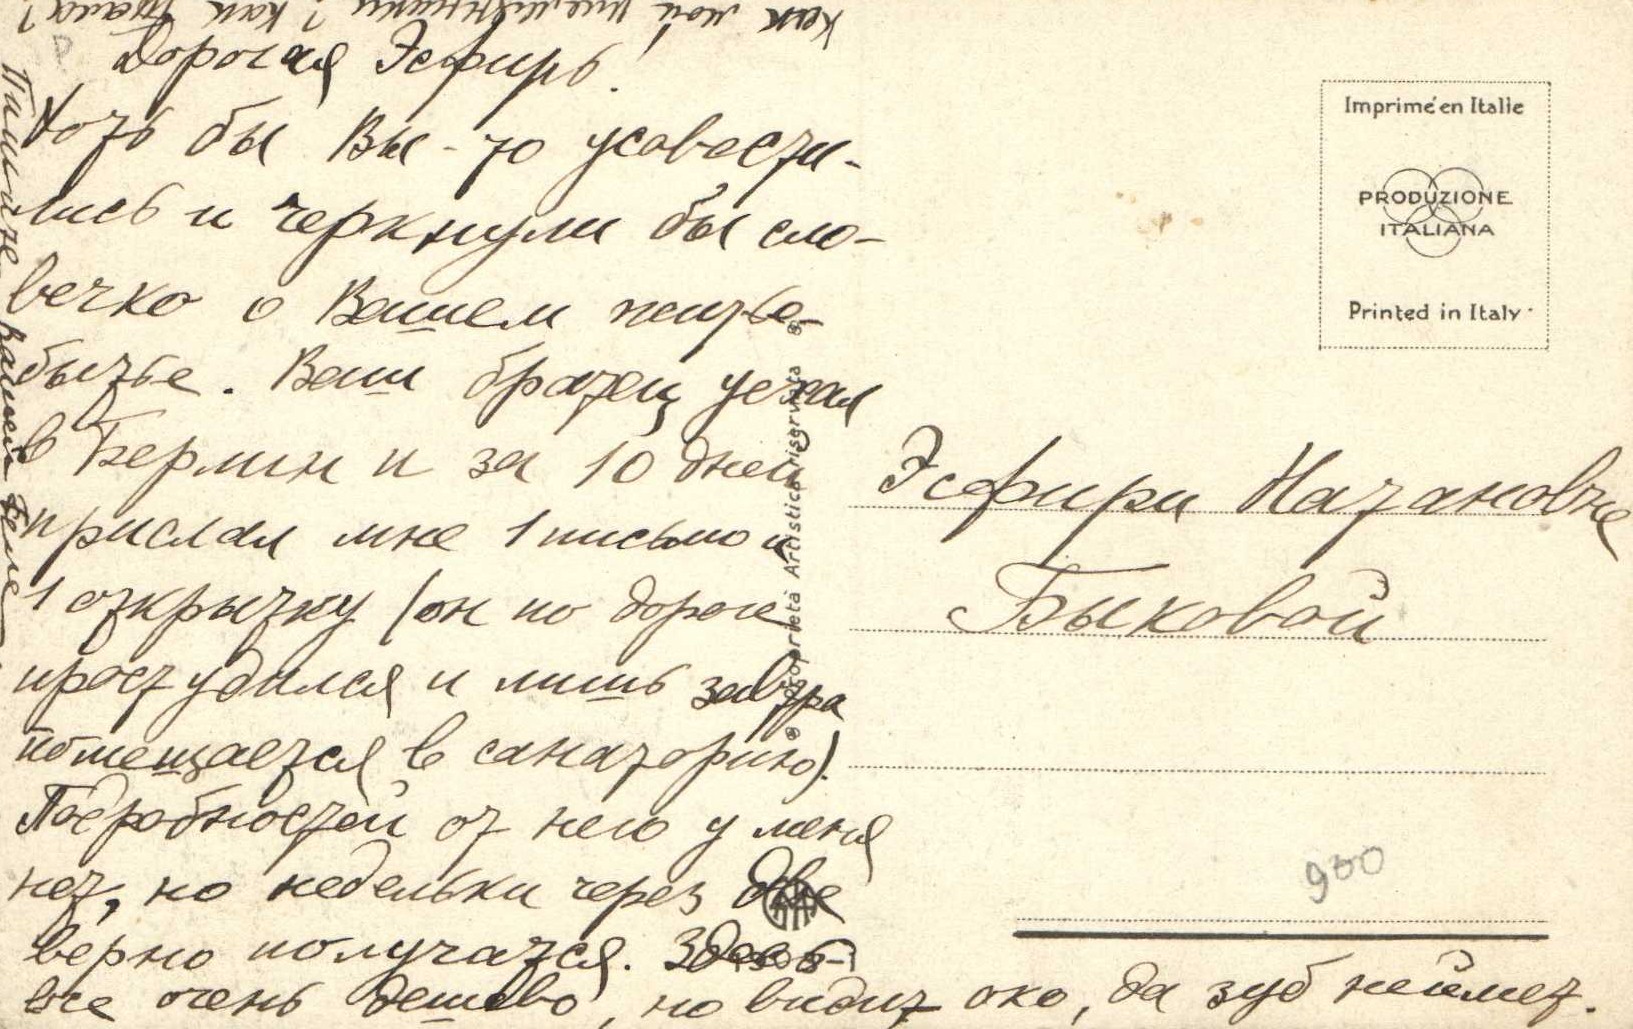 Дорогая Эсфирь!
Хоть бы Вы-то усовести-
лись и черкнули бы сло-
вечко о Вашем житье-
бытье. Ваш братец уехал
в Берлин и за 10 дней
прислал мне 1 письмо и
1 открытку (он по дороге
простудился и лишь завтра
помещается в санаторию).
Подробностей от него у меня
нет, но недельки через две
верно получатся. Здесь
все очень дешево, но видит око, да зуб неймет.
Пишите Вашей Беле
как мой племянник? как папа?
Proprietà Artistica riservata
Imprimé en Italie
PRODUZIONE
ITALIANA
Printed in Italy
Эсфири Натановне
Быковой
900